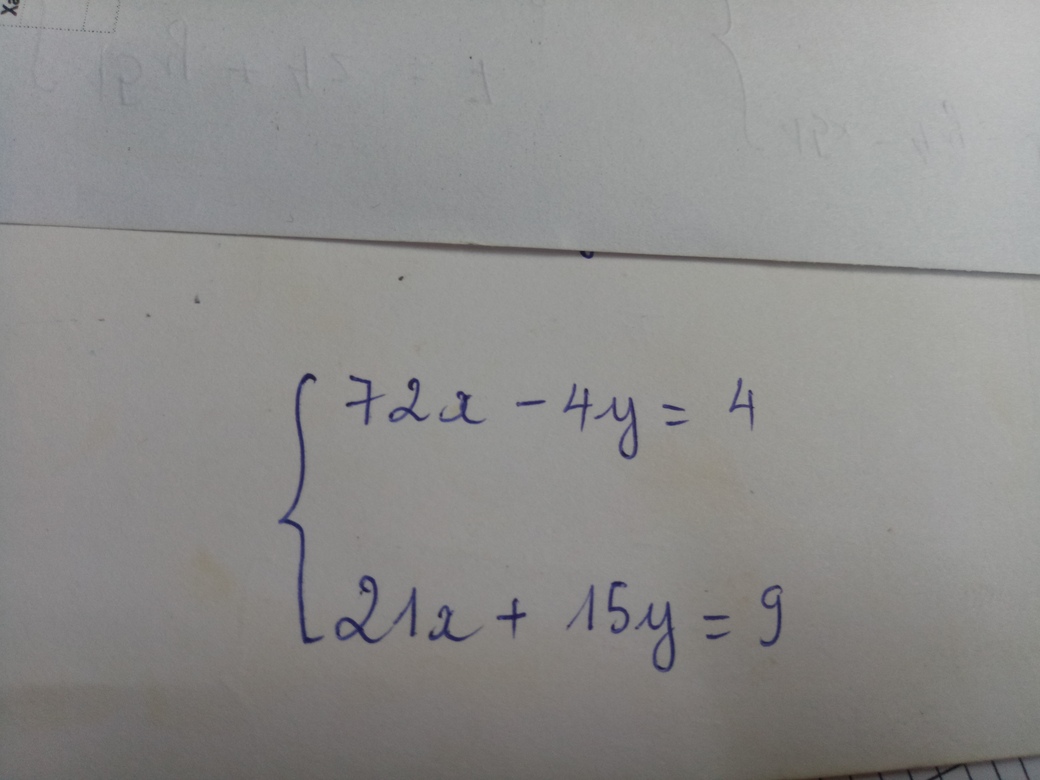 72x - 4y = 4
21x + 15y = 9